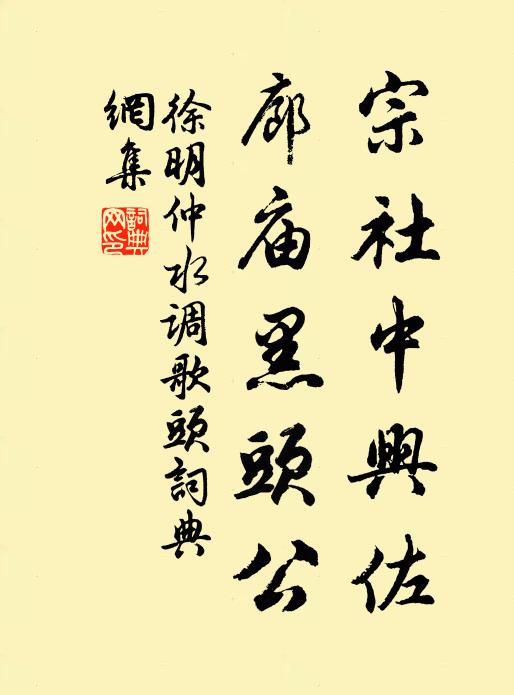 宗社中興佐
廊庙黑頭公
徐明仲水调歌頭詞典
網集
詞典
网印